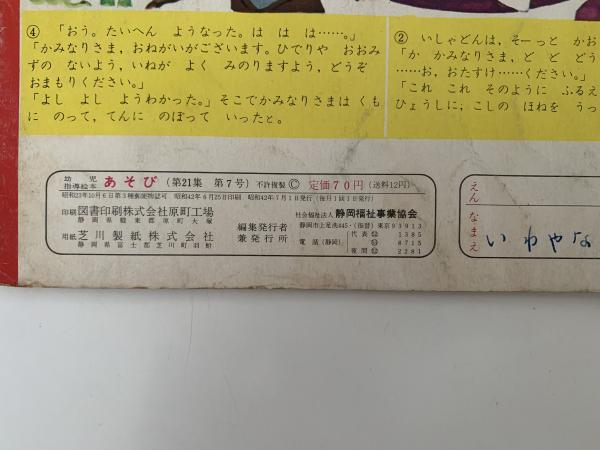 ④「おう。たいへん　ようなった。は　は　は……。」
「かみなりさま，おねがいがございます。ひでりや　おおみ
ずの　ないよう，いねが　よく　みのりますよう，どうぞ
おまもりください。」
「よし　よし　ようわかった。」そこでかみなりさまは　くも
に　のって，てんに　のぼって　いったと。
②　いしゃどんは，そーっと　かお
「か　かみなりさま，ど　ど　どう
……お，おたすけ……ください。」
「これ　これ　そのように　ふるえ
ひょうしに，こしの　ほねを　うっ
幼児
指導絵本　あそび（第21集　第7号）不許複製Ⓒ　定価70円（送料12円）
昭和23年10月6日第3種郵便物認可　昭和42年6月25日印刷　昭和42年7月1日発行（毎月1回1日発行）
印刷　図書印刷株式会社原町工場
静岡県駿東郡原町大塚
用紙　芝川製紙株式会社
静岡県富士郡芝川町羽鮒
編集発行者
兼発行所
社会福祉法人　静岡福祉事業協会
静岡市上足洗445・（振替）東京93913
電話（静岡）
代表　1385
8715
夜間　2281
えんなまえ
いわやな